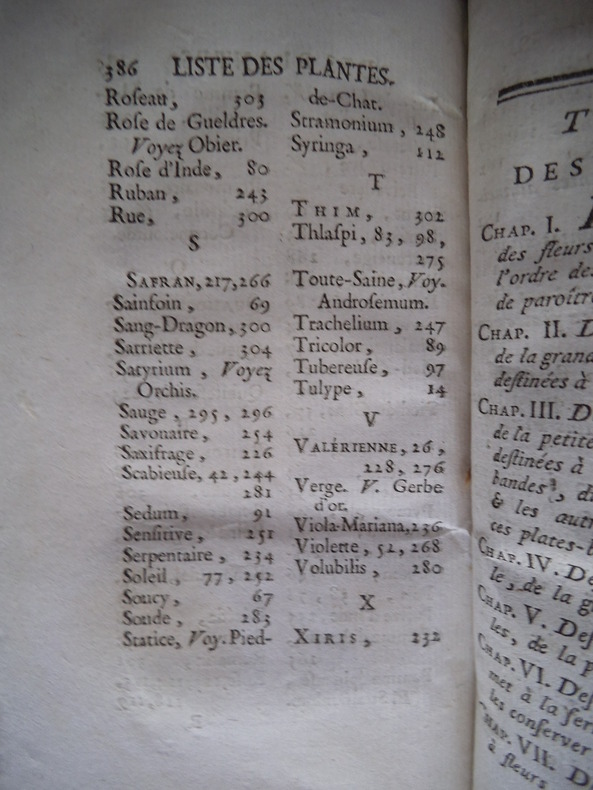 386 LISTE DES PLANTES.
Roſeau, 303
Roſe de Gueldres.
Voyez Obier.
Roſe d'Inde, 80
Ruban, 243
Rue, 300
S
SAFRAN, 217, 266
Sainfoin, 69
Sang-Dragon, 300
Sarriette, 304
Satyrium, Voyez
Orchis.
Sauge, 295, 296
Savonaire, 254
Saxifrage, 226
Scabieuſe, 42, 244
281
Sedum, 91
Senſitive, 251
Serpentaire, 234
Soleil, 77, 252
Soucy, 67
Soude, 283
Statice, Voy. Pied-
de-Chat.
Stramonium, 248
Syringa, 112
T
THIM, 302
Thlaſpi, 83, 98,
275
Toute-Saine, Voy.
Androſemum.
Trachelium, 247
Tricolor, 89
Tubereuſe, 97
Tulype, 14
V
VALÉRIENNE, 26,
228, 276
Verge. V. Gerbe
d'or.
Viola-Mariana, 236
Violette, 52, 268
Volubilis, 280
X
XIRIS, 232
T
DES
CHAP. I.
des fleurs
l'ordre de
de paroîtr
CHAP. II. D
de la grand
deſtinées à
CHAP. III. D
de la petite
deſtinées à
bandes, d
& les autr
ces plates-b
CHAP. IV. De
le, de la g
CHAP. V. Deſ
les, de la p
CHAP. VI. Deſ
met à la ſer
les conſerver
CHAP. VII. D
à fleurs